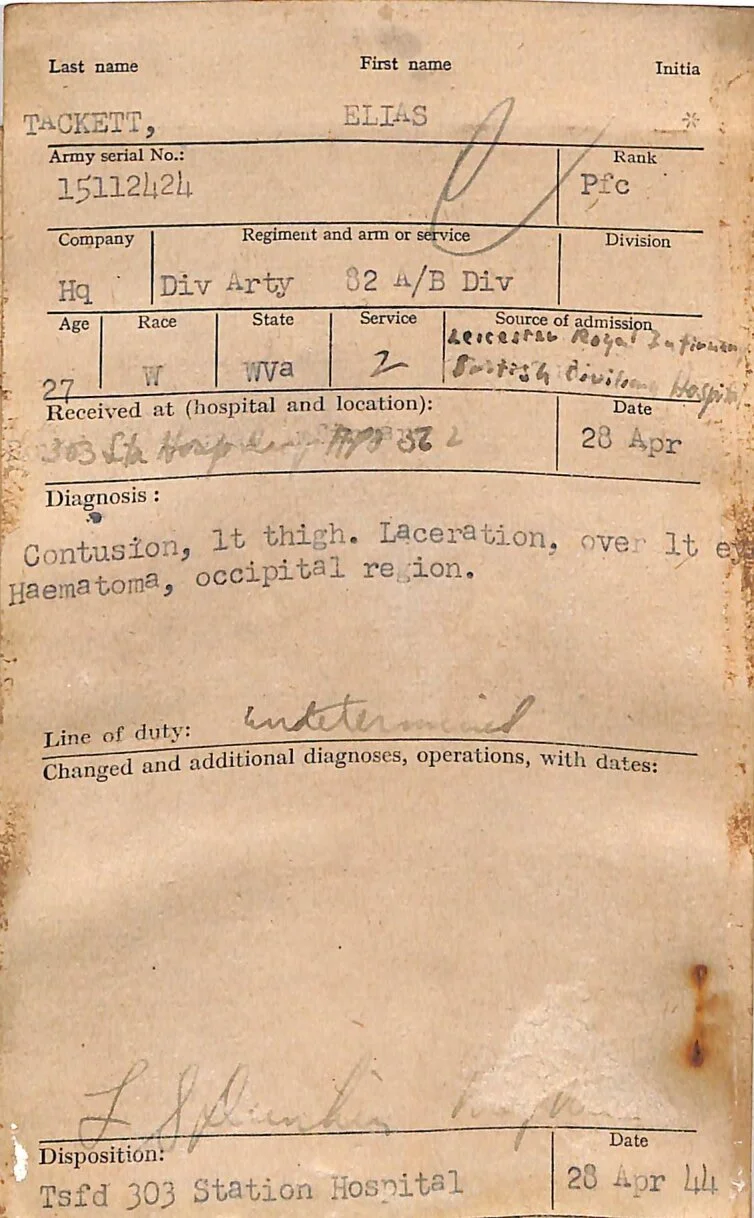 Last name First name Initia
TACKETT, ELIAS *
Army serial No.: Rank
15112424 Pfc
Company Regiment and arm or service Division
Hq Div Arty 82 A/B Div
Age Race State Service Source of admission
Leicester Royal Infirmary
27 W WVa 2 British Civilian Hospital
Received at (hospital and location): Date
303 Sta Hosp 28 Apr
Diagnosis:
Contusion, lt thigh. Laceration, over lt ey
Haematoma, occipital region.
Line of duty: undetermined
Changed and additional diagnoses, operations, with dates:
Disposition: Date
Tsfd 303 Station Hospital 28 Apr 44